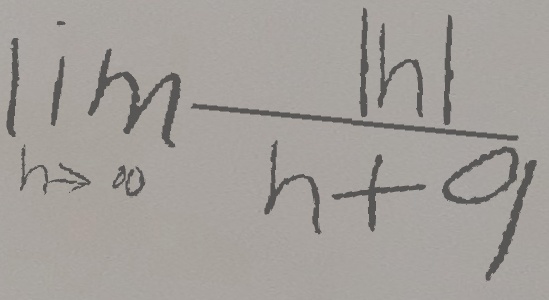 lim |h|
h→∞ h+9